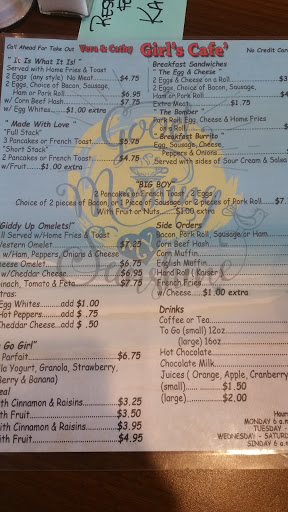 Call Ahead For Take Out Vera & Cathy Girl's Cafe' No Credit Car
" It Is What It Is! "
Served with Home Fries & Toast
2 Eggs (any style) No Meat.....$4.75
2 Eggs, Choice of Bacon, Sausage,
Ham or Pork Roll $6.95
w/ Corn Beef Hash $7.75
w/ Egg Whites $1.00 extra
" Made With Love "
"Full Stack"
3 Pancakes or French Toast $5.75
"Short Stack"
2 Pancakes or French Toast $4.75
w/Fruit $1.00 extra
Breakfast Sandwiches
" The Egg & Cheese "
2 Eggs & Cheese on a Roll $3
2 Eggs, Choice of Bacon, Sausage,
Ham or Pork Roll $4
Extra Meat $1.75
" The Bomber "
Pork Roll, Egg, Cheese & Home Fries
on a Roll
" Breakfast Burrito "
Egg, Sausage, Cheese,
Peppers & Onions
Served with sides of Sour Cream & Salsa
Good Morning Sunshine
"BIG BOY"
2 Pancakes or French Toast, 2 Eggs
Choice of 2 pieces of Bacon, 2 pieces of Sausage, or 2 pieces of Pork Roll $7.
With Fruit or Nuts $1.00 extra
Giddy Up Omelets!"
Served w/Home Fries & Toast
Western Omelet $7.25
w/Ham, Peppers, Onions & Cheese
Cheese Omelet $6.75
w/Cheddar Cheese $6.95
Spinach, Tomato & Feta $7.75
Extras:
Egg Whites.....add $1.00
Hot Peppers....add $ .75
Cheddar Cheese...add $ .50
Go Girl"
Parfait $6.75
Yogurt, Granola, Strawberry,
erry & Banana)
eal
ith Cinnamon & Raisins $3.25
ith Fruit $3.50
ith Cinnamon & Raisins $3.95
ith Fruit $4.95
Side Orders
Bacon, Pork Roll, Sausage, or Ham
Corn Beef Hash
Corn Muffin
English Muffin
Hard Roll / Kaiser
French Fries
w/Cheese $1.00 extra
Drinks
Coffee or Tea
To Go (small) 12oz
(large) 16oz
Hot Chocolate
Chocolate Milk
Juices ( Orange, Apple, Cranberry
(small) $1.50
(large) $2.00
Hours
MONDAY 6 a.m
TUESDAY -
WEDNESDAY - SATURD
SUNDAY 6 a.m